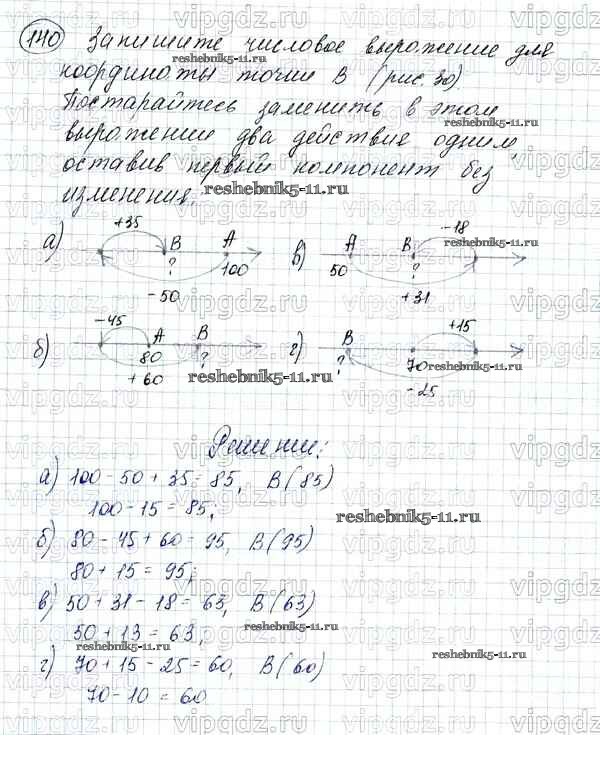 140 Запишите числовое выражение для
координаты точки В (рис. 30)
Постарайтесь заменить в этом
выражении два действия одним,
оставив первый компонент без
изменения.
reshebnik5-11.ru
а) +35 В А ? 100 -50
в) А В -18 50 ? +31
б) -45 А В 80 ? +60
г) В +15 ? 70 -25
reshebnik5-11.ru
Решение:
а) 100 - 50 + 35 = 85, В(85)
100 - 15 = 85;
reshebnik5-11.ru
б) 80 - 45 + 60 = 95, В(95)
80 + 15 = 95;
в) 50 + 31 - 18 = 63, В(63)
50 + 13 = 63;
reshebnik5-11.ru
г) 70 + 15 - 25 = 60, В(60)
70 - 10 = 60
vipgdz.ru